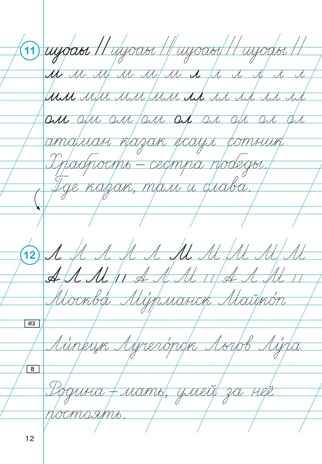 11 шуоаы || шуоаы || шуоаы || шуоаы ||
м м м м м м м л л л л л л
мм мм мм мм лл лл лл лл лл
ом ом ом ом ол ол ол ол ол
атаман казак есаул сотник
Храбрость – сестра победы.
Где казак, там и слава.
12 Л Л Л Л Л М М М М М
А Л М ıı А Л М ıı А Л М ıı
Москва́ Му́рманск Майко́п
Ли́пецк Лучего́рск Льгов Лу́га
В
Родина – мать, умей за неё
постоять.
12